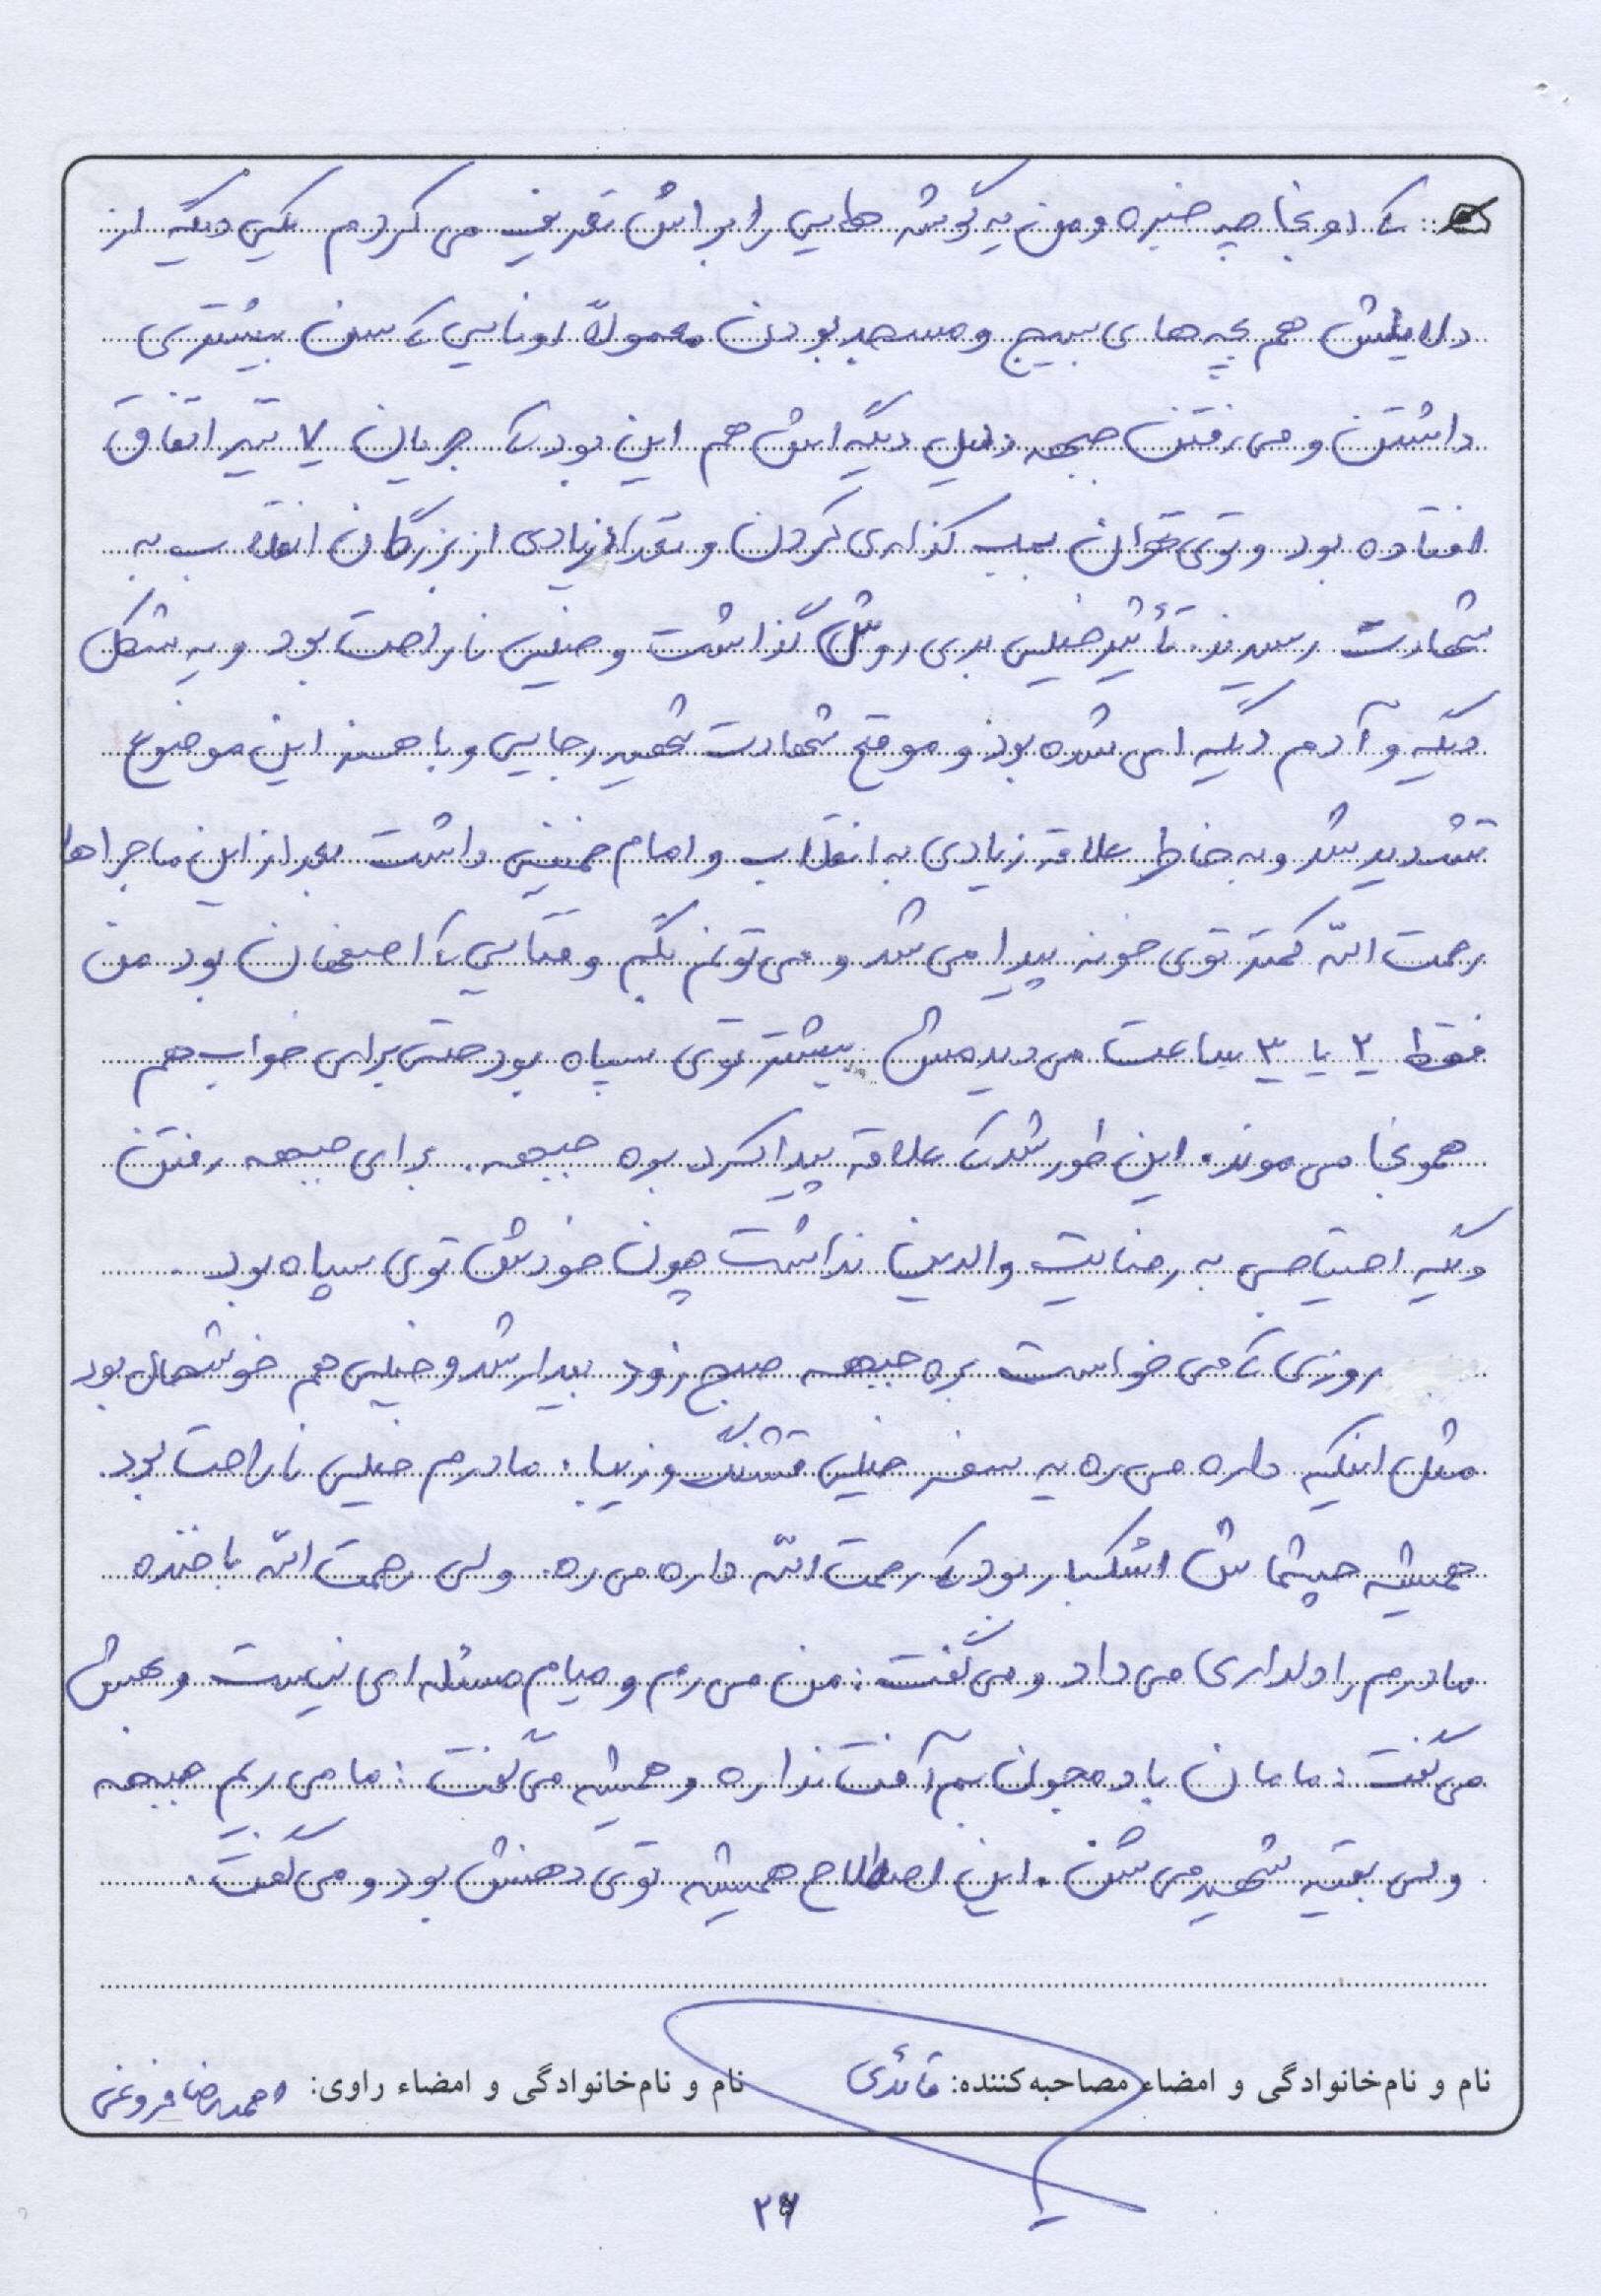 که اونجا چه خبره و من یه گوشه هایی را براش تعریف می کردم یکی دیگه از
دلایلش هم بچه های بسیج و مسجد بودن معمولاً اونایی که سن بیشتری
داشتن و می رفتن جبهه دلیل دیگه اش هم این بود که جریان ۷ تیر اتفاق
افتاده بود و توی تهران بمب گذاری کردن و تعداد زیادی از بزرگان انقلاب به
شهادت رسیدند. تأثیر خیلی بدی روش گذاشت و خیلی ناراحت بود و یه شکل
دیگه و آدم دیگه ای شده بود و موقع شهادت شهید رجایی و باهنر این موضوع
تشدید شد و به خاطر علاقه زیادی به انقلاب و امام خمینی داشت بعد از این ماجراها
رحمت الله کمتر توی خونه پیدا می شد و می تونم بگم وقتایی که اصفهان بود من
فقط ۲ یا ۳ ساعت می دیدمش بیشتر توی سپاه بود حتی برای خواب هم
همونجا می موند. این طور شد که علاقه پیدا کرد بره جبهه. برای جبهه رفتن
دیگه احتیاجی به رضایت والدین نداشت چون خودش توی سپاه بود.
روزی که می خواست بره جبهه صبح زود بیدار شد و خیلی هم خوشحال بود
مثل اینکه داره می ره یه سفر خیلی قشنگ و زیبا. مادرم خیلی ناراحت بود
همیشه چشماش اشکبار بود که رحمت الله داره می ره. ولی رحمت الله با خنده
مادرم را دلداری می داد و می گفت: من می رم و میام مسئله ای نیست و بهش
می گفت: مامان بادمجون بم آفت نداره و همیشه می گفت: ما می ریم جبهه
ولی بقیه شهید می شن. این اصطلاح همیشه توی دهنش بود و می گفت.
نام و نام‌خانوادگی و امضاء مصاحبه‌کننده: قائدی نام و نام‌خانوادگی و امضاء راوی: احمدرضا فروغی
۲۶